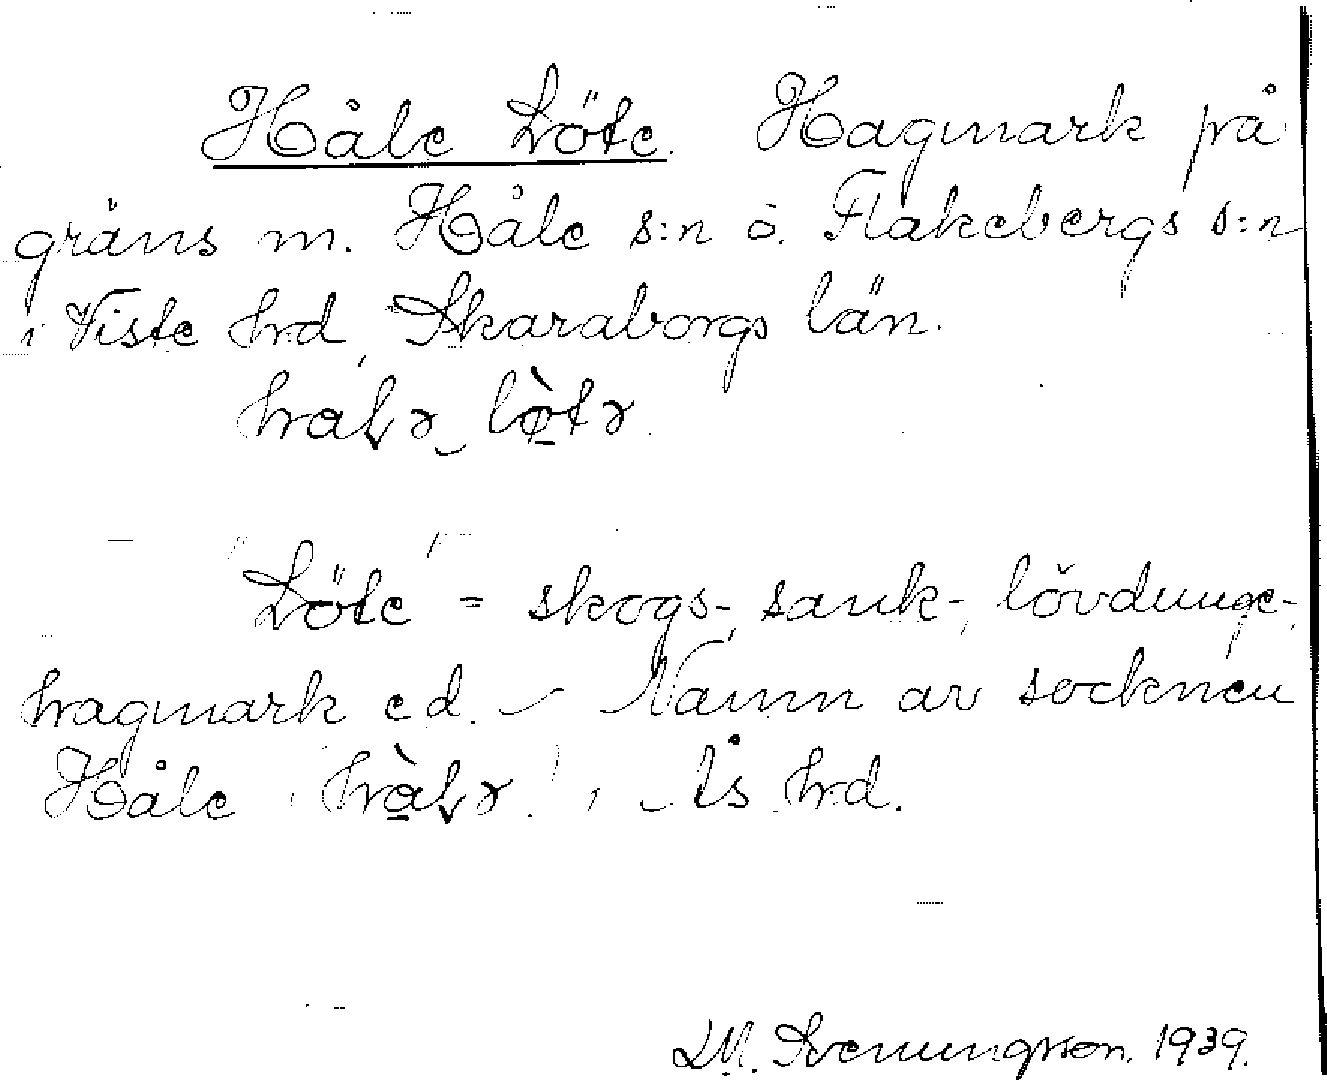 Håle Löte. Hagmark på
gräns m. Håle s:n o. Flakebergs s:n
i Viste hrd, Skaraborgs län.
"Löte" = skogs-, sank-, lövdunge-,
hagmark ed. – Namn av socknen
Håle, i Ås hrd.
M. Svenungsson. 1939.